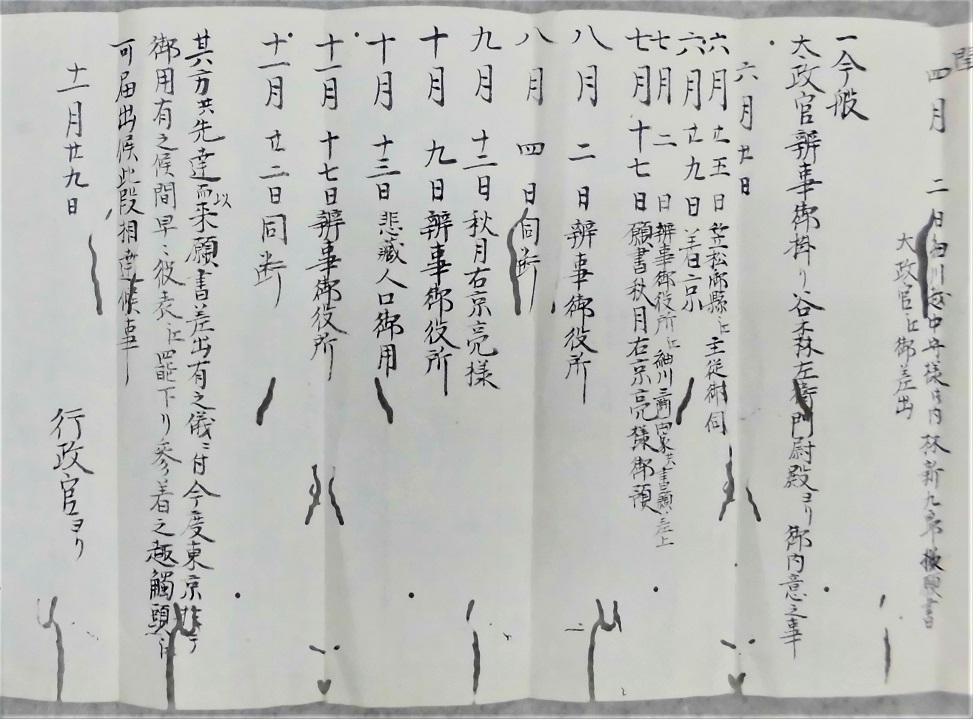 閏
四月二日細川越中守様御内林新九郎様願書
大政官江御差出
一今般
太政官辨事御掛リ谷森左衛門尉殿ヨリ御内意之事
六月廿日
六月廿五日笠松郷縣江主従御伺
六月廿九日着京
七月二日辨事御役所江細川
七月十七日願書秋月右京亮様御預
八月二日辨事御役所
八月四日同断
九月十二日秋月右京亮様
十月九日辨事御役所
十月十三日悲蔵人口御用
十一月十七日辨事御役所
十一月廿二日同断
其方共先達而以来願書差出有之儀ニ付今度東京
御用有之候間早々彼表江罷下リ参着之趣觸頭江
可届出候此段相達候事
十一月廿九日
行政官ヨリ